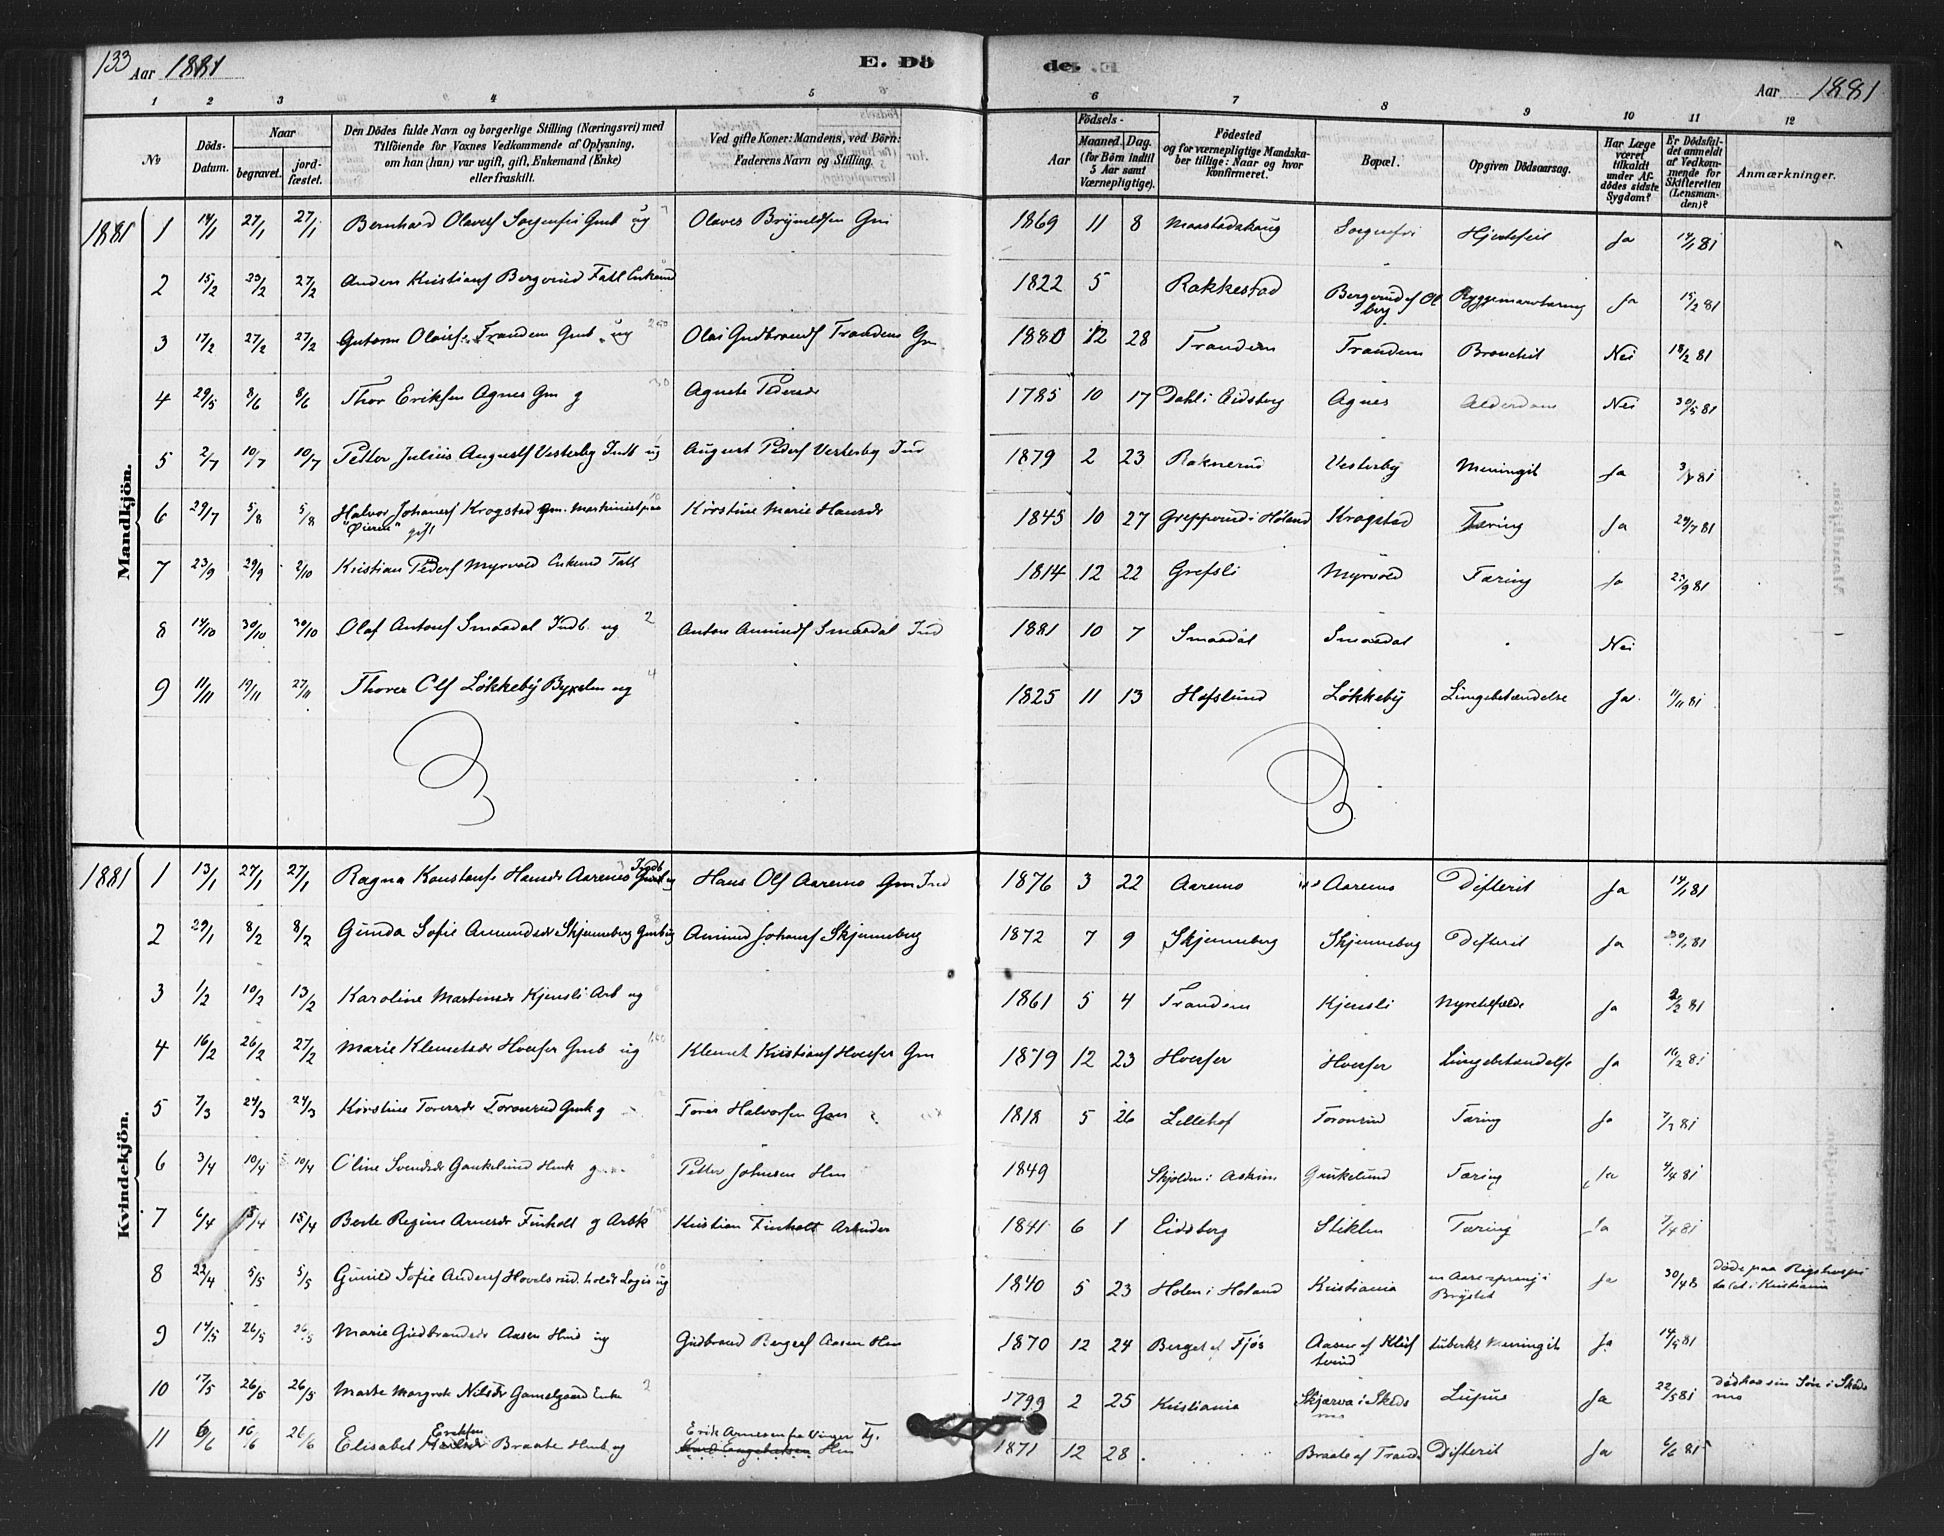 133 Aar 1881 E. Dö de. Aar 1881
1 2 3 4 5 6 7 8 9 10 11 12
No Döds-Datum. Naar begravet. jord-fæstet. Den Dödes fulde Navn og borgerlige Stilling (Næringsvei) med Tilföiende for Voxnes Vedkommende af Oplysning, om han (hun) var ugift, gift, Enkemand (Enke) eller fraskilt. Ved gifte Koner: Mandens, ved Börn: Faderens Navn og Stilling. Födsels- Aar Maaned. Dag. (for Börn indtil 5 Aar samt Værnepligtige). Födested og for værnepligtige Mandskaber tillige: Naar og hvor konfirmeret. Bopæl. Opgiven Dödsaarsag. Har Læge været tilkaldt under Afdödes sidste Sygdom? Er Dödsfaldet anmeldt af Vedkommende for Skifteretten (Lensmanden)? Anmærkninger.
Mandkjön.
1881 1 14/1 27/1 27/1 Bernhard Olavesf Sorgenfri Gmb ug Olaves Brynildsen Gm 1869 11 8 Maastadshaug Sorgenfri Hjertefeil Ja 14/1 81
2 15/2 23/2 27/2 Anders Kristiansf Bergerud Fatl Enkemd 1822 5 Rakkestad Bergerud af Ol berg Ryggemarvtæring Ja 15/2 81
3 17/2 27/2 27/2 Gutorm Olaisf Trandem Gmb ug Olai Gudbrandsf Trandem Gm 1880 12 28 Trandem Trandem Bronchit Nei 18/2 81
4 29/5 8/6 8/6 Thor Eriksen Agnes Gm g Agnete Pedersdr 1785 10 17 Dahl i Eidsberg Agnes Alderdom Nei 30/5 81
5 2/7 10/7 10/7 Petter Julius Augustsf Vesterby Indb ug August Pedersf Vesterby Ind 1879 2 23 Raknerud Vesterby Meningit Ja 3/7 81
6 29/7 5/8 5/8 Halvor Johanesf Krogstad Gm. Maskinist paa "Öieren" gift Kirstine Marie Hansdr 1845 10 27 Grepprud i Höland Krogstad Tæring Ja 29/7 81
7 23/9 29/9 2/10 Kristian Pedersf Myrvold Enkemd Fatl 1814 12 22 Grefsli Myrvold Tæring Ja 23/9 81
8 14/10 30/10 30/10 Olaf Antonsf Smaadal Indb. ug Anton Amundsf Smaadal Ind 1881 10 7 Smaadal Smaadal Nei
9 11/11 19/11 27/11 Thorer Olsf Løkkeby Bygselm ug 1825 11 13 Hafslund Løkkeby Lungebetændelse Ja 11/11 81
Kvindekjön.
1881 1 13/1 27/1 27/1 Ragna Konstanse Hansdr Aaremo Indb ug Hans Olsf Aaremo Gm Ind 1876 3 22 Aaremo Aaremo Difterit Ja 14/1 81
2 29/1 8/2 8/2 Gunda Sofie Amundsdr Skjenneberg Gmb ug Amund Johansf Skjenneberg 1872 7 9 Skjenneberg Skjenneberg Difterit Ja 30/1 81
3 1/2 10/2 13/2 Karoline Martinsdr Kjensli Arb ug 1861 5 4 Trandem Kjensli Nyretilfælde Ja 2/2 81
4 16/2 26/2 27/2 Marie Klemetsdr Hverfer Gmb ug Klemet Kristiansf Hverfer Gm 1879 12 23 Hverfer Hverfer Lungebetændelse Ja 16/2 81
5 7/3 24/3 24/3 Kirstine Toresdr Toronrud Gmk g Tores Halvorsen Gm 1818 5 26 Lillehof Toronrud Tæring Ja 7/3 81
6 3/4 10/4 10/4 Oline Svendsdr Gaukelund Hmk g Petter Johnsen Hm 1849 Skjolden i Askim Gaukelund Tæring Ja 4/4 81
7 6/4 13/4 15/4 Berte Regine Arnesdr Finholt g Arbk Kristian Finholt Arbeider 1841 6 1 Eidsberg Stiklen Tæring Ja 7/4 81
8 22/4 5/5 5/5 Gunild Sofie Andersf Hovelsrud. holdt Logis ug 1840 5 23 Holen i Höland Kristiania en Aare sprang i Brystet Ja 30/4 81 Døde paa Rigshospitalet i Kristiania
9 14/5 26/5 26/5 Marie Gudbrandsdr Aasen Hmb ug Gudbrand Bergersf Aasen Hm 1870 12 24 Berget af Fjøs Aasen af Kleif tvind tuberkl Meningit Ja 14/5 81
10 17/5 26/5 26/5 Marte Margrete Nilsdr Gamelgaard Enke 1799 2 25 Kristiania Skjærva i Skeds mo Lupus Ja 22/5 81 Død hos sin Søn i Skeds mo
11 6/6 16/6 26/6 Elisabet Eriksen Braate Hmb ug Erik Arnesen fra Vinger Tj. Hm 1871 12 28 Braate af Trandem Difterit Ja 6/6 81